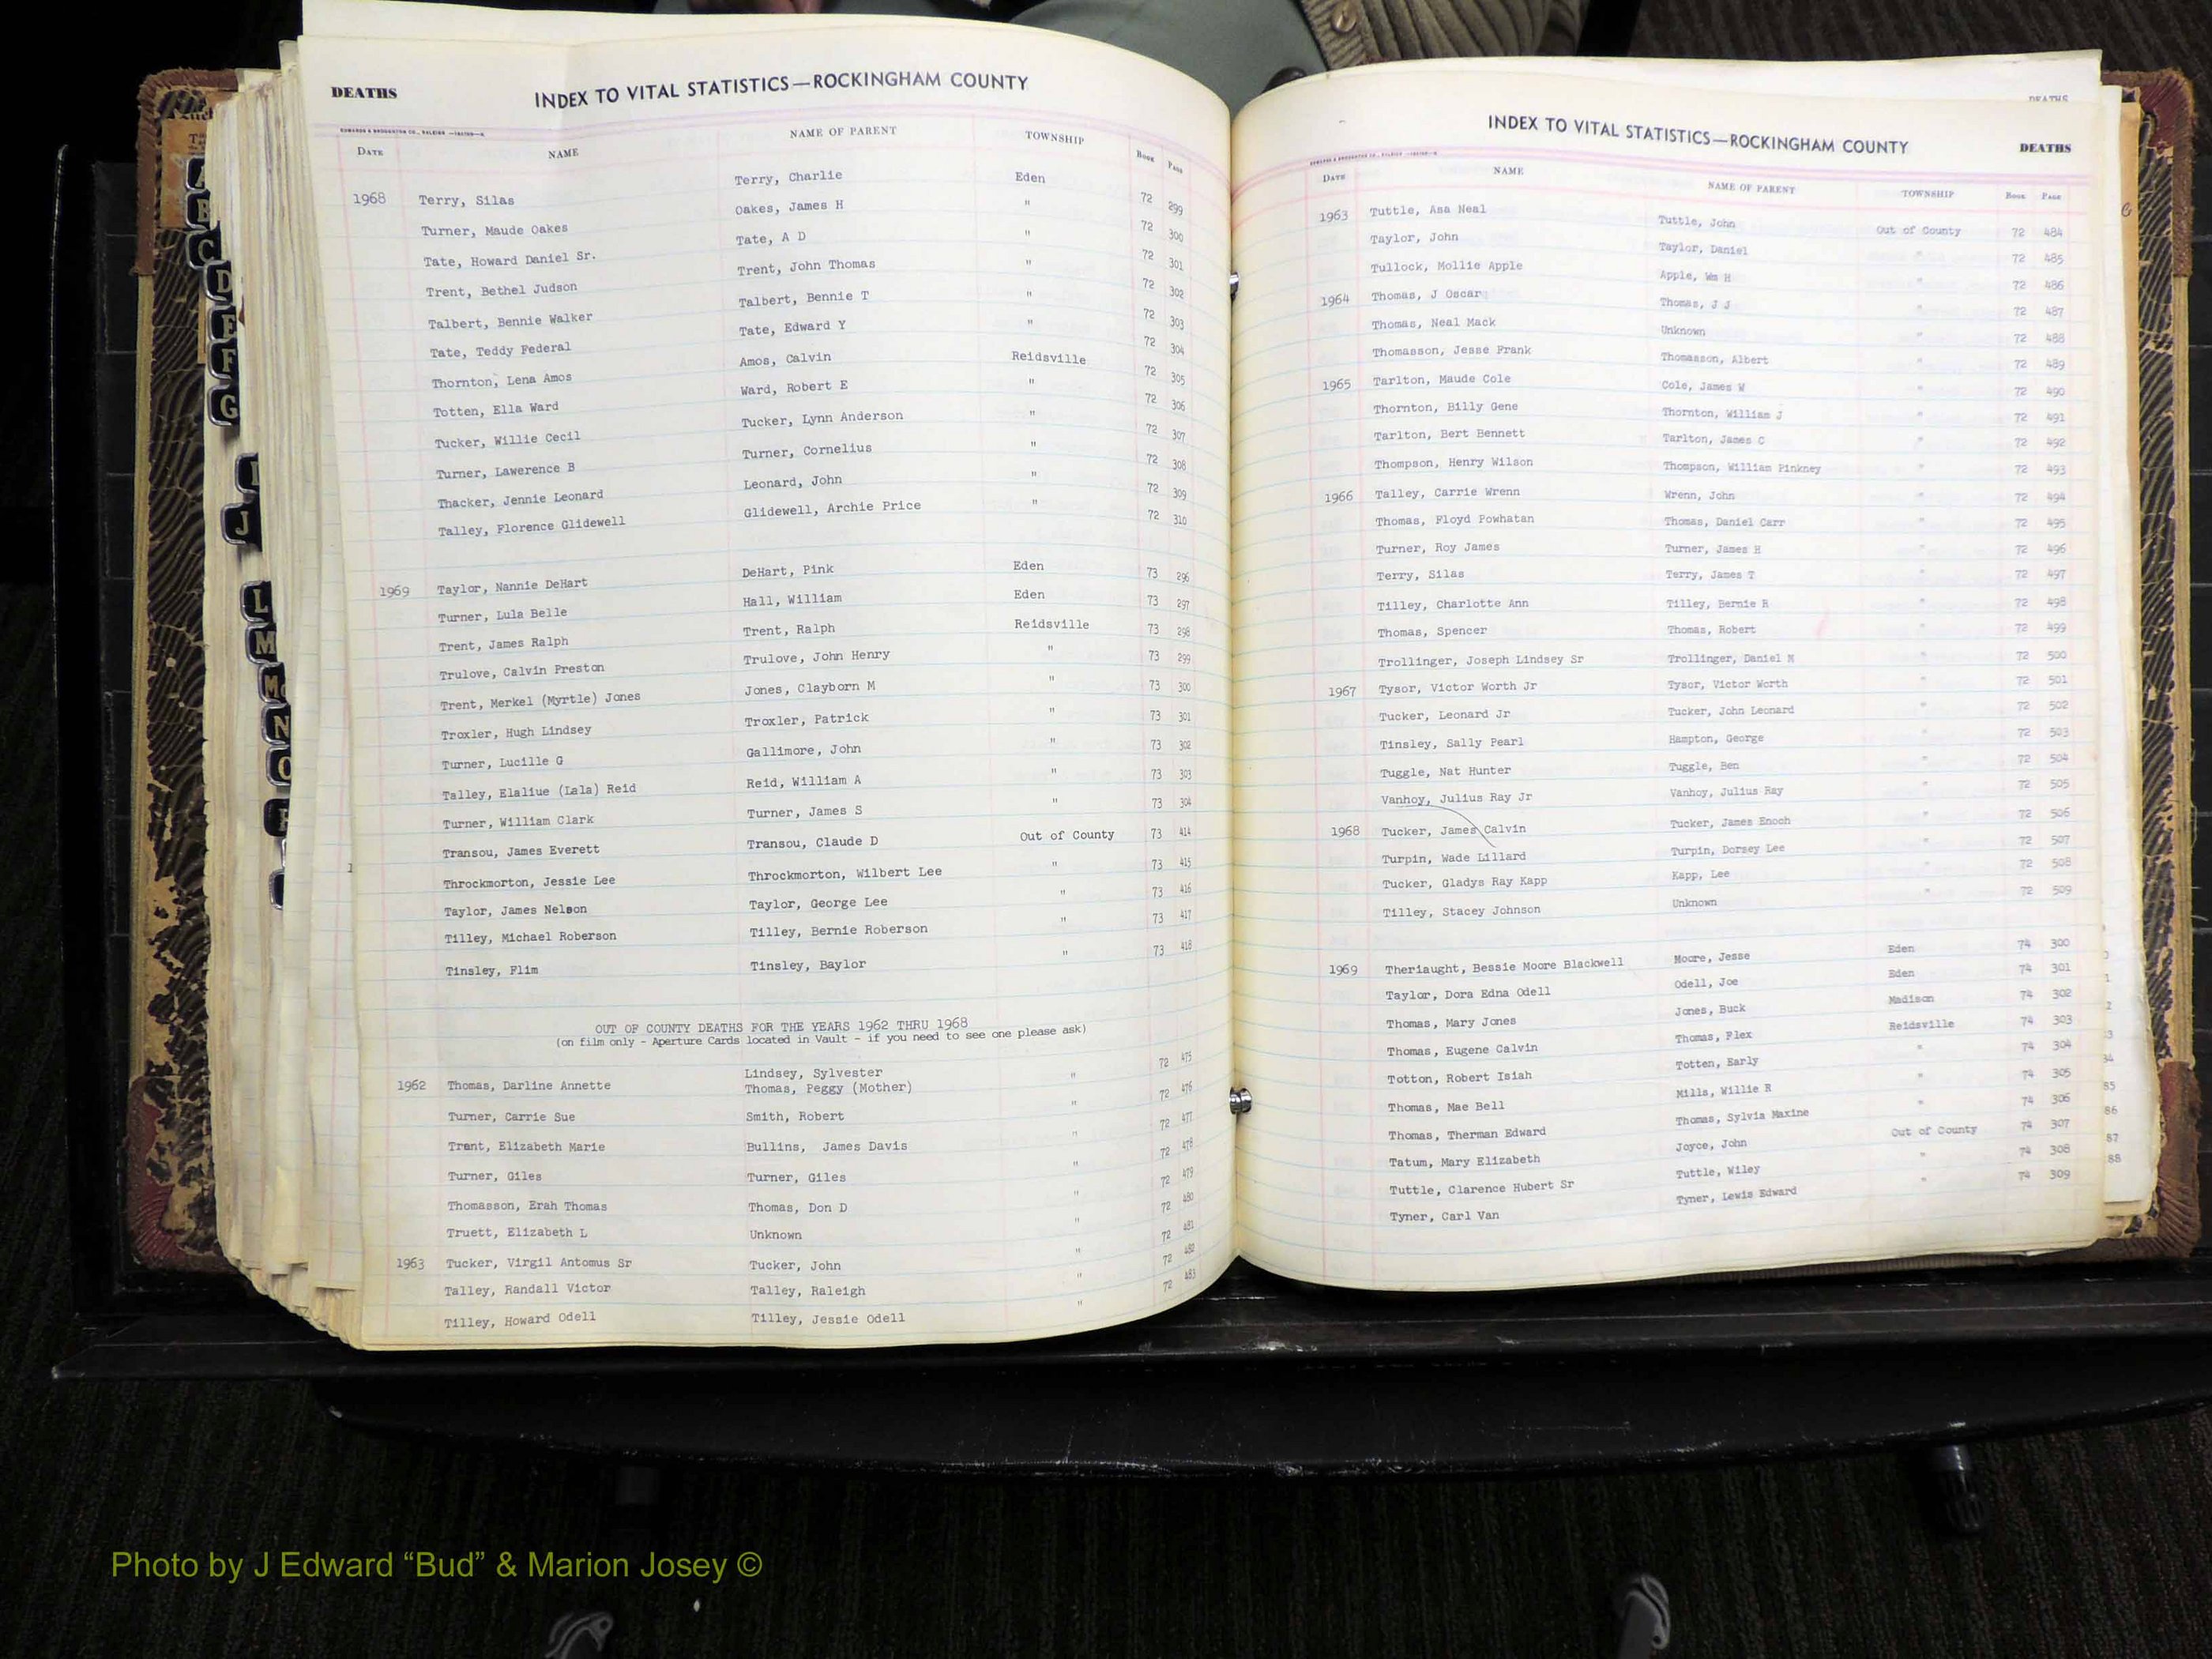 DEATHS
INDEX TO VITAL STATISTICS—ROCKINGHAM COUNTY
DATE NAME NAME OF PARENT TOWNSHIP Book Page
1968 Terry, Silas Terry, Charlie Eden 72 299
Turner, Maude Oakes Oakes, James H " 72 300
Tate, Howard Daniel Sr. Tate, A D " 72 301
Trent, Bethel Judson Trent, John Thomas " 72 302
Talbert, Bennie Walker Talbert, Bennie T " 72 303
Tate, Teddy Federal Tate, Edward Y " 72 304
Thornton, Lena Amos Amos, Calvin Reidsville 72 305
Totten, Ella Ward Ward, Robert E " 72 306
Tucker, Willie Cecil Tucker, Lynn Anderson " 72 307
Turner, Lawerence B Turner, Cornelius " 72 308
Thacker, Jennie Leonard Leonard, John " 72 309
Talley, Florence Glidewell Glidewell, Archie Price " 72 310
1969 Taylor, Nannie DeHart DeHart, Pink Eden 73 296
Turner, Lula Belle Hall, William Eden 73 297
Trent, James Ralph Trent, Ralph Reidsville 73 298
Trulove, Calvin Preston Trulove, John Henry " 73 299
Trent, Merkel (Myrtle) Jones Jones, Clayborn M " 73 300
Troxler, Hugh Lindsey Troxler, Patrick " 73 301
Turner, Lucille G Gallimore, John " 73 302
Talley, Elaliue (Lala) Reid Reid, William A " 73 303
Turner, William Clark Turner, James S " 73 304
Transou, James Everett Transou, Claude D Out of County 73 414
Throckmorton, Jessie Lee Throckmorton, Wilbert Lee " 73 415
Taylor, James Nelson Taylor, George Lee " 73 416
Tilley, Michael Roberson Tilley, Bernie Roberson " 73 417
Tinsley, Flim Tinsley, Baylor " 73 418
OUT OF COUNTY DEATHS FOR THE YEARS 1962 THRU 1968
(on film only - Aperture Cards located in Vault - if you need to see one please ask)
Lindsey, Sylvester
1962 Thomas, Darline Annette Thomas, Peggy (Mother) " 72 475
Turner, Carrie Sue Smith, Robert " 72 476
Trent, Elizabeth Marie Bullins, James Davis " 72 477
Turner, Giles Turner, Giles " 72 478
Thomasson, Erah Thomas Thomas, Don D " 72 479
Truett, Elizabeth L Unknown " 72 480
1963 Tucker, Virgil Antomus Sr Tucker, John " 72 481
Talley, Randall Victor Talley, Raleigh " 72 482
Tilley, Howard Odell Tilley, Jessie Odell " 72 483
DEATHS
INDEX TO VITAL STATISTICS—ROCKINGHAM COUNTY DEATHS
DATE NAME NAME OF PARENT TOWNSHIP Book Page
1963 Tuttle, Asa Neal Tuttle, John Out of County 72 484
Taylor, John Taylor, Daniel " 72 485
Tullock, Mollie Apple Apple, Wm H " 72 486
1964 Thomas, J Oscar Thomas, J J " 72 487
Thomas, Neal Mack Unknown " 72 488
Thomasson, Jesse Frank Thomasson, Albert " 72 489
1965 Tarlton, Maude Cole Cole, James W " 72 490
Thornton, Billy Gene Thornton, William J " 72 491
Tarlton, Bert Bennett Tarlton, James C " 72 492
Thompson, Henry Wilson Thompson, William Pinkney " 72 493
1966 Talley, Carrie Wrenn Wrenn, John " 72 494
Thomas, Floyd Powhatan Thomas, Daniel Carr " 72 495
Turner, Roy James Turner, James H " 72 496
Terry, Silas Terry, James T " 72 497
Tilley, Charlotte Ann Tilley, Bernie R " 72 498
Thomas, Spencer Thomas, Robert " 72 499
Trollinger, Joseph Lindsey Sr Trollinger, Daniel M " 72 500
1967 Tysor, Victor Worth Jr Tysor, Victor Worth " 72 501
Tucker, Leonard Jr Tucker, John Leonard " 72 502
Tinsley, Sally Pearl Hampton, George " 72 503
Tuggle, Nat Hunter Tuggle, Ben " 72 504
Vanhoy, Julius Ray Jr Vanhoy, Julius Ray " 72 505
1968 Tucker, James Calvin Tucker, James Enoch " 72 506
Turpin, Wade Lillard Turpin, Dorsey Lee " 72 507
Tucker, Gladys Ray Kapp Kapp, Lee " 72 508
Tilley, Stacey Johnson Unknown " 72 509
1969 Theriaught, Bessie Moore Blackwell Moore, Jesse Eden 74 300
Taylor, Dora Edna Odell Odell, Joe Eden 74 301
Thomas, Mary Jones Jones, Buck Madison 74 302
Thomas, Eugene Calvin Thomas, Flex Reidsville 74 303
Totton, Robert Isiah Totten, Early " 74 304
Thomas, Mae Bell Mills, Willie R " 74 305
Thomas, Therman Edward Thomas, Sylvia Maxine " 74 306
Tatum, Mary Elizabeth Joyce, John Out of County 74 307
Tuttle, Clarence Hubert Sr Tuttle, Wiley " 74 308
Tyner, Carl Van Tyner, Lewis Edward " 74 309
85
86
87
88
A
B
C
D
E
F
G
J
L
M
N
Photo by J Edward “Bud” & Marion Josey ©